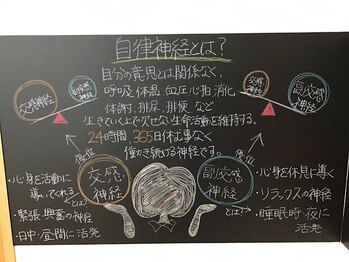 自律神経とは?
自分の意思とは関係なく、
呼吸、体温、血圧、心拍、消化、
体謝、排尿、排便、など
生きていく上で欠せない生命活動を維持する。
24時間 365日休む事なく
働き続ける神経です。
交感神経
副交感神経
交感神経
副交感神経
優位
・心身を活動に
導いてくれる
・緊張・興奮の神経
・日中・昼間に活発
交感
神経
とは?
優位
副交感
神経
とは?
・心身を休息に導く
・リラックスの神経
・睡眠時・夜に
活発